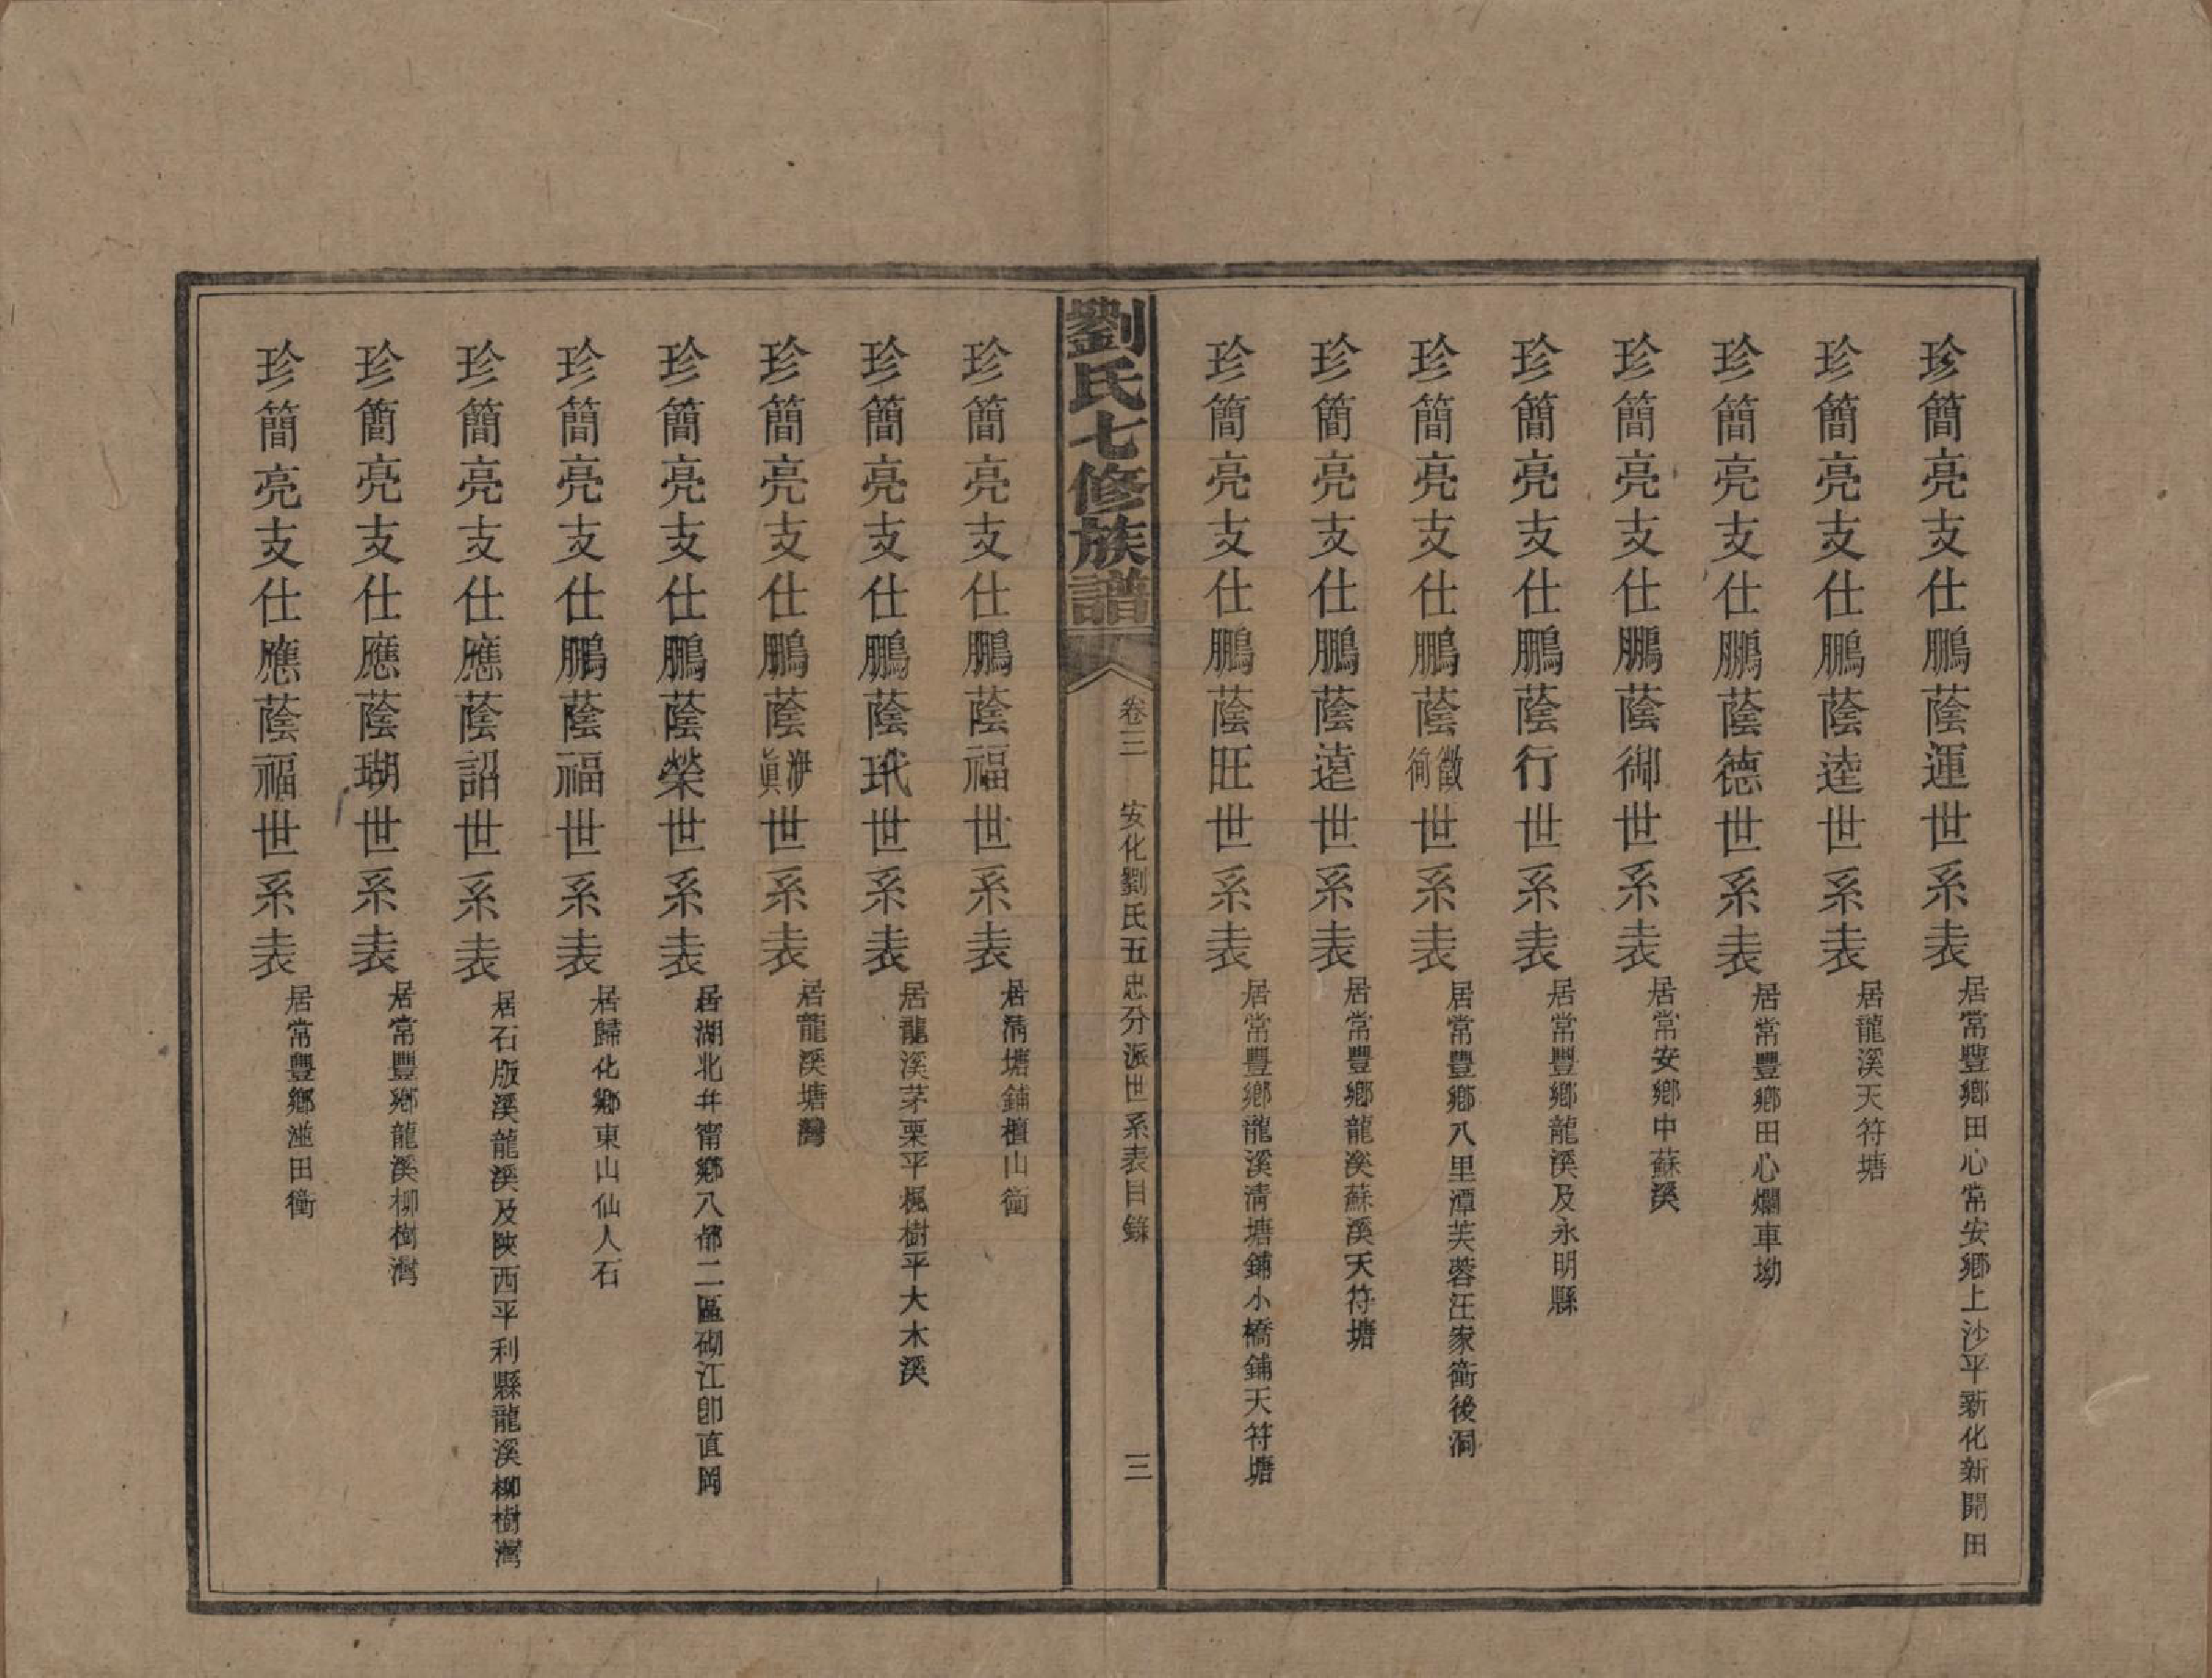 珍簡亮支仕鵬蔭運世系表 居常豐鄉田心常安鄉上沙平新化新開田
珍簡亮支仕鵬蔭逵世系表 居龍溪天符塘
珍簡亮支仕鵬蔭德世系表 居常豐鄉田心爛車坳
珍簡亮支仕鵬蔭御世系表 居常安鄉中蘇溪
珍簡亮支仕鵬蔭行世系表 居常豐鄉龍溪及永明縣
珍簡亮支仕鵬蔭徵衕世系表 居常豐鄉八里潭芙蓉汪家衝後洞
珍簡亮支仕鵬蔭遠世系表 居常豐鄉龍溪蘇溪天符塘
珍簡亮支仕鵬蔭旺世系表 居常豐鄉龍溪清塘鋪小橋鋪天符塘
劉氏七修族譜 卷三 安化劉氏五忠分派世系表目錄 三
珍簡亮支仕鵬蔭福世系表 居清塘鋪檀山衝
珍簡亮支仕鵬蔭玳世系表 居龍溪茅栗平楓樹平大木溪
珍簡亮支仕鵬蔭海眞世系表 居龍溪塘灣
珍簡亮支仕鵬蔭榮世系表 居湖北甯鄉八都二區砌江卽直岡
珍簡亮支仕鵬蔭福世系表 居歸化鄉東山仙人石
珍簡亮支仕應蔭詔世系表 居石版溪龍溪及陝西平利縣龍溪柳樹灣
珍簡亮支仕應蔭瑚世系表 居常豐鄉龍溪柳樹灣
珍簡亮支仕應蔭福世系表 居常豐鄉溢田衝